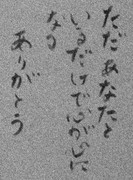 ただあなたと
いるだけで心が
なる
ありがとう